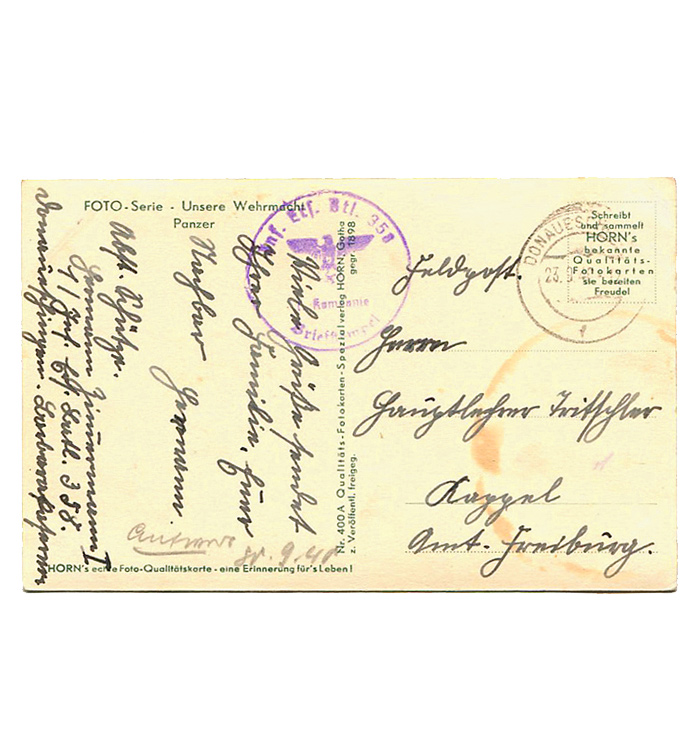 FOTO-Serie - Unsere Wehrmacht
Panzer
Inf. Ers. Btl. 358
Kompanie
Briefstempel
Abs. Schütze
Hermann Zimmermann I
Inf. Ers. Batl. 358.
Donaueschingen.
Viele Grüße sendet
Ihrer Familie, Euer
Nachbar
Hermann
Antwort
30.9.40
HORN's echte Foto-Qualitätskarte - eine Erinnerung für's Leben!
Nr. 400 A Qualitäts-Fotokarten-Spezialverlag HORN, Gotha
z. Veröffentl. freigeg.
gegr. 1898
Feldpost.
DONAUESCH
23.9.
Schreibt
und sammelt
HORN's
bekannte
Qualitäts-
Fotokarten
sie bereiten
Freude!
Herrn
Hauptlehrer Tritschler
Kappel
Amt-Freiburg.